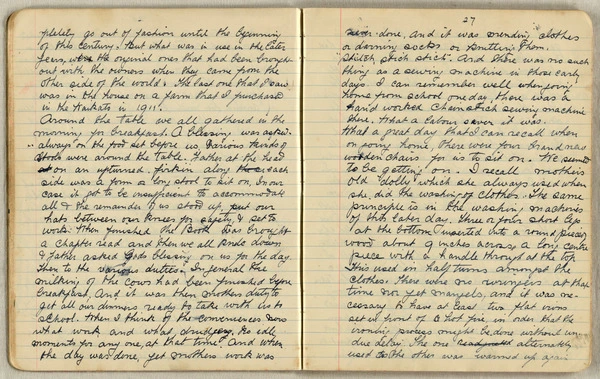 pletely go out of fashion until the beginning
of this century. But what was in use in the later
years, were the original ones that had been brought
out with the owners when they came from the
other side of the world. The last one that I saw
was in the house on a farm that I purchased
in the in 1911.
Around the table we all gathered in the
morning for breakfast. A blessing was asked
always on the food set before us. Various kinds of
stools were around the table. Father at the head
on an upturned firkin along each
side was a form or long stool to sit on. In our
case it got to be insufficient to accommodate
all & the remainder of us stood up, put our
hats between our knees for safety, & set to
work. When finished the Book was brought
a Chapter read and then we all knelt down
& father asked Gods blessing on us for the day.
Then to the various duties. In general the
milking of the cows had been finished before
breakfast. And it was then mothers duty to
get all our dinners ready to take with us to
school. When I think of the conveniences now
what work and what drudgery. No idle
moments for any one, at that time. And when
the day was done, yet mothers work was
27
never done, and it was mending clothes
or darning socks or knitting them.
Stitch, stich stich. And there was no such
thing as a sewing machine in those early
days. I can remember well when going
home from school one day, there was a
hand worked Chain stich sewing machine
there. What a labour saver it was.
What a great day that I can recall when
on going home, there were four brand new
wooden chairs for us to sit on. We seemed
to be getting on. I recall mothers
old "dolly" which she always used when
she did the washing of clothes. The same
principle is in the washing machines
of this later day. Three or four short legs
at the bottom inserted into a round piece of
wood about 9 inches across, a long centre
piece with a handle through at the top.
This used in half turns amongst the
clothes. There were no wringers at that
time nor yet mangels, and it was ne-
cessary to have at least two flat irons
set in front of a hot fire, in order that the
ironing process might be done without un-
due delay. The one alternately
used as the other was warmed up again